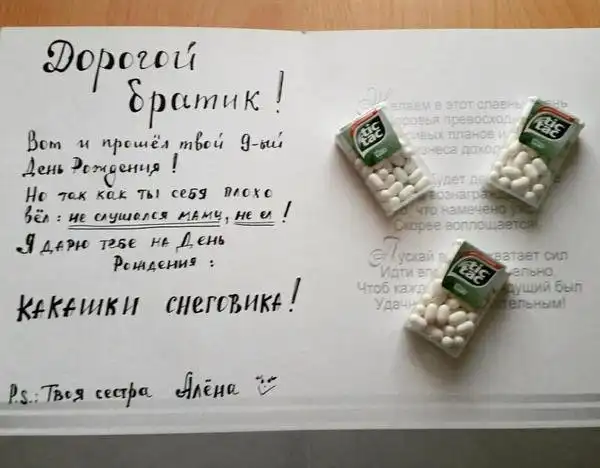 Дорогой
братик!
Вот и прошёл твой 9-ый
День Рождения!
Но так как ты себя плохо
вёл: не слушался маму, не ел!
Я дарю тебе на День
Рождения:
КАКАШКИ СНЕГОВИКА!
P.S.: Твоя сестра Алёна
tic tac
tic tac
tic tac
Желаем в этот славный день
превосход
планов и
доход
будет
вознагра
что намечено
Скорее воплощается
Пускай хватает сил
Идти
Чтоб кажд дущий был
Удач тельным!